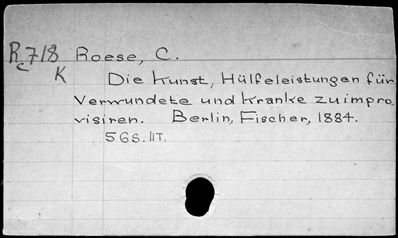 R 718 Roese, C.
c
K
Die Kunst, Hülfeleistungen für
Verwundete und Kranke zu impro
visiren. Berlin, Fischer, 1884.
56 S. IIT.